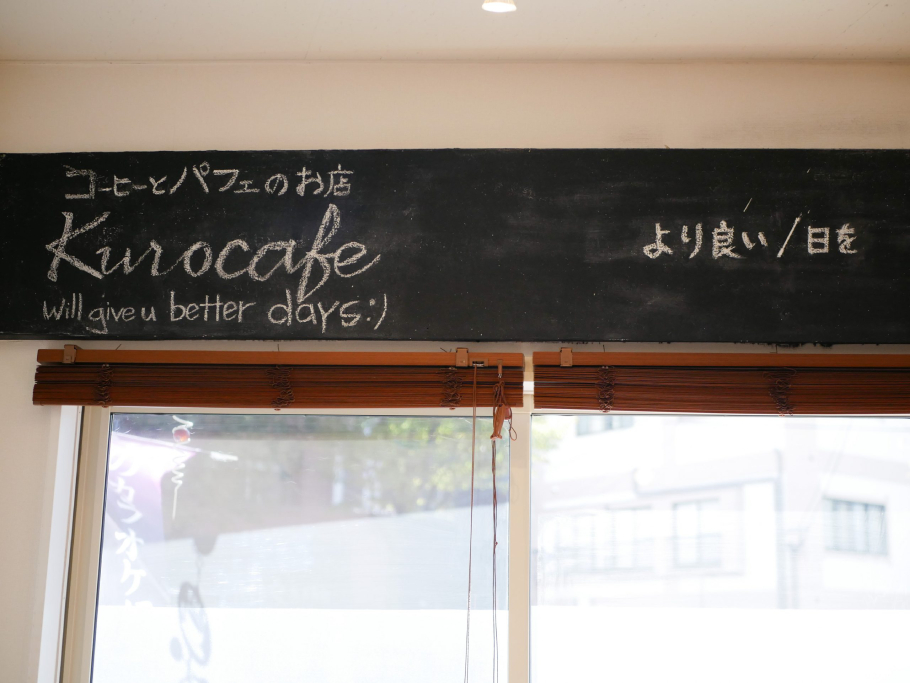 コーヒーとパフェのお店
Kurocafe
will give u better days:)
より良い/日を
カラオケ